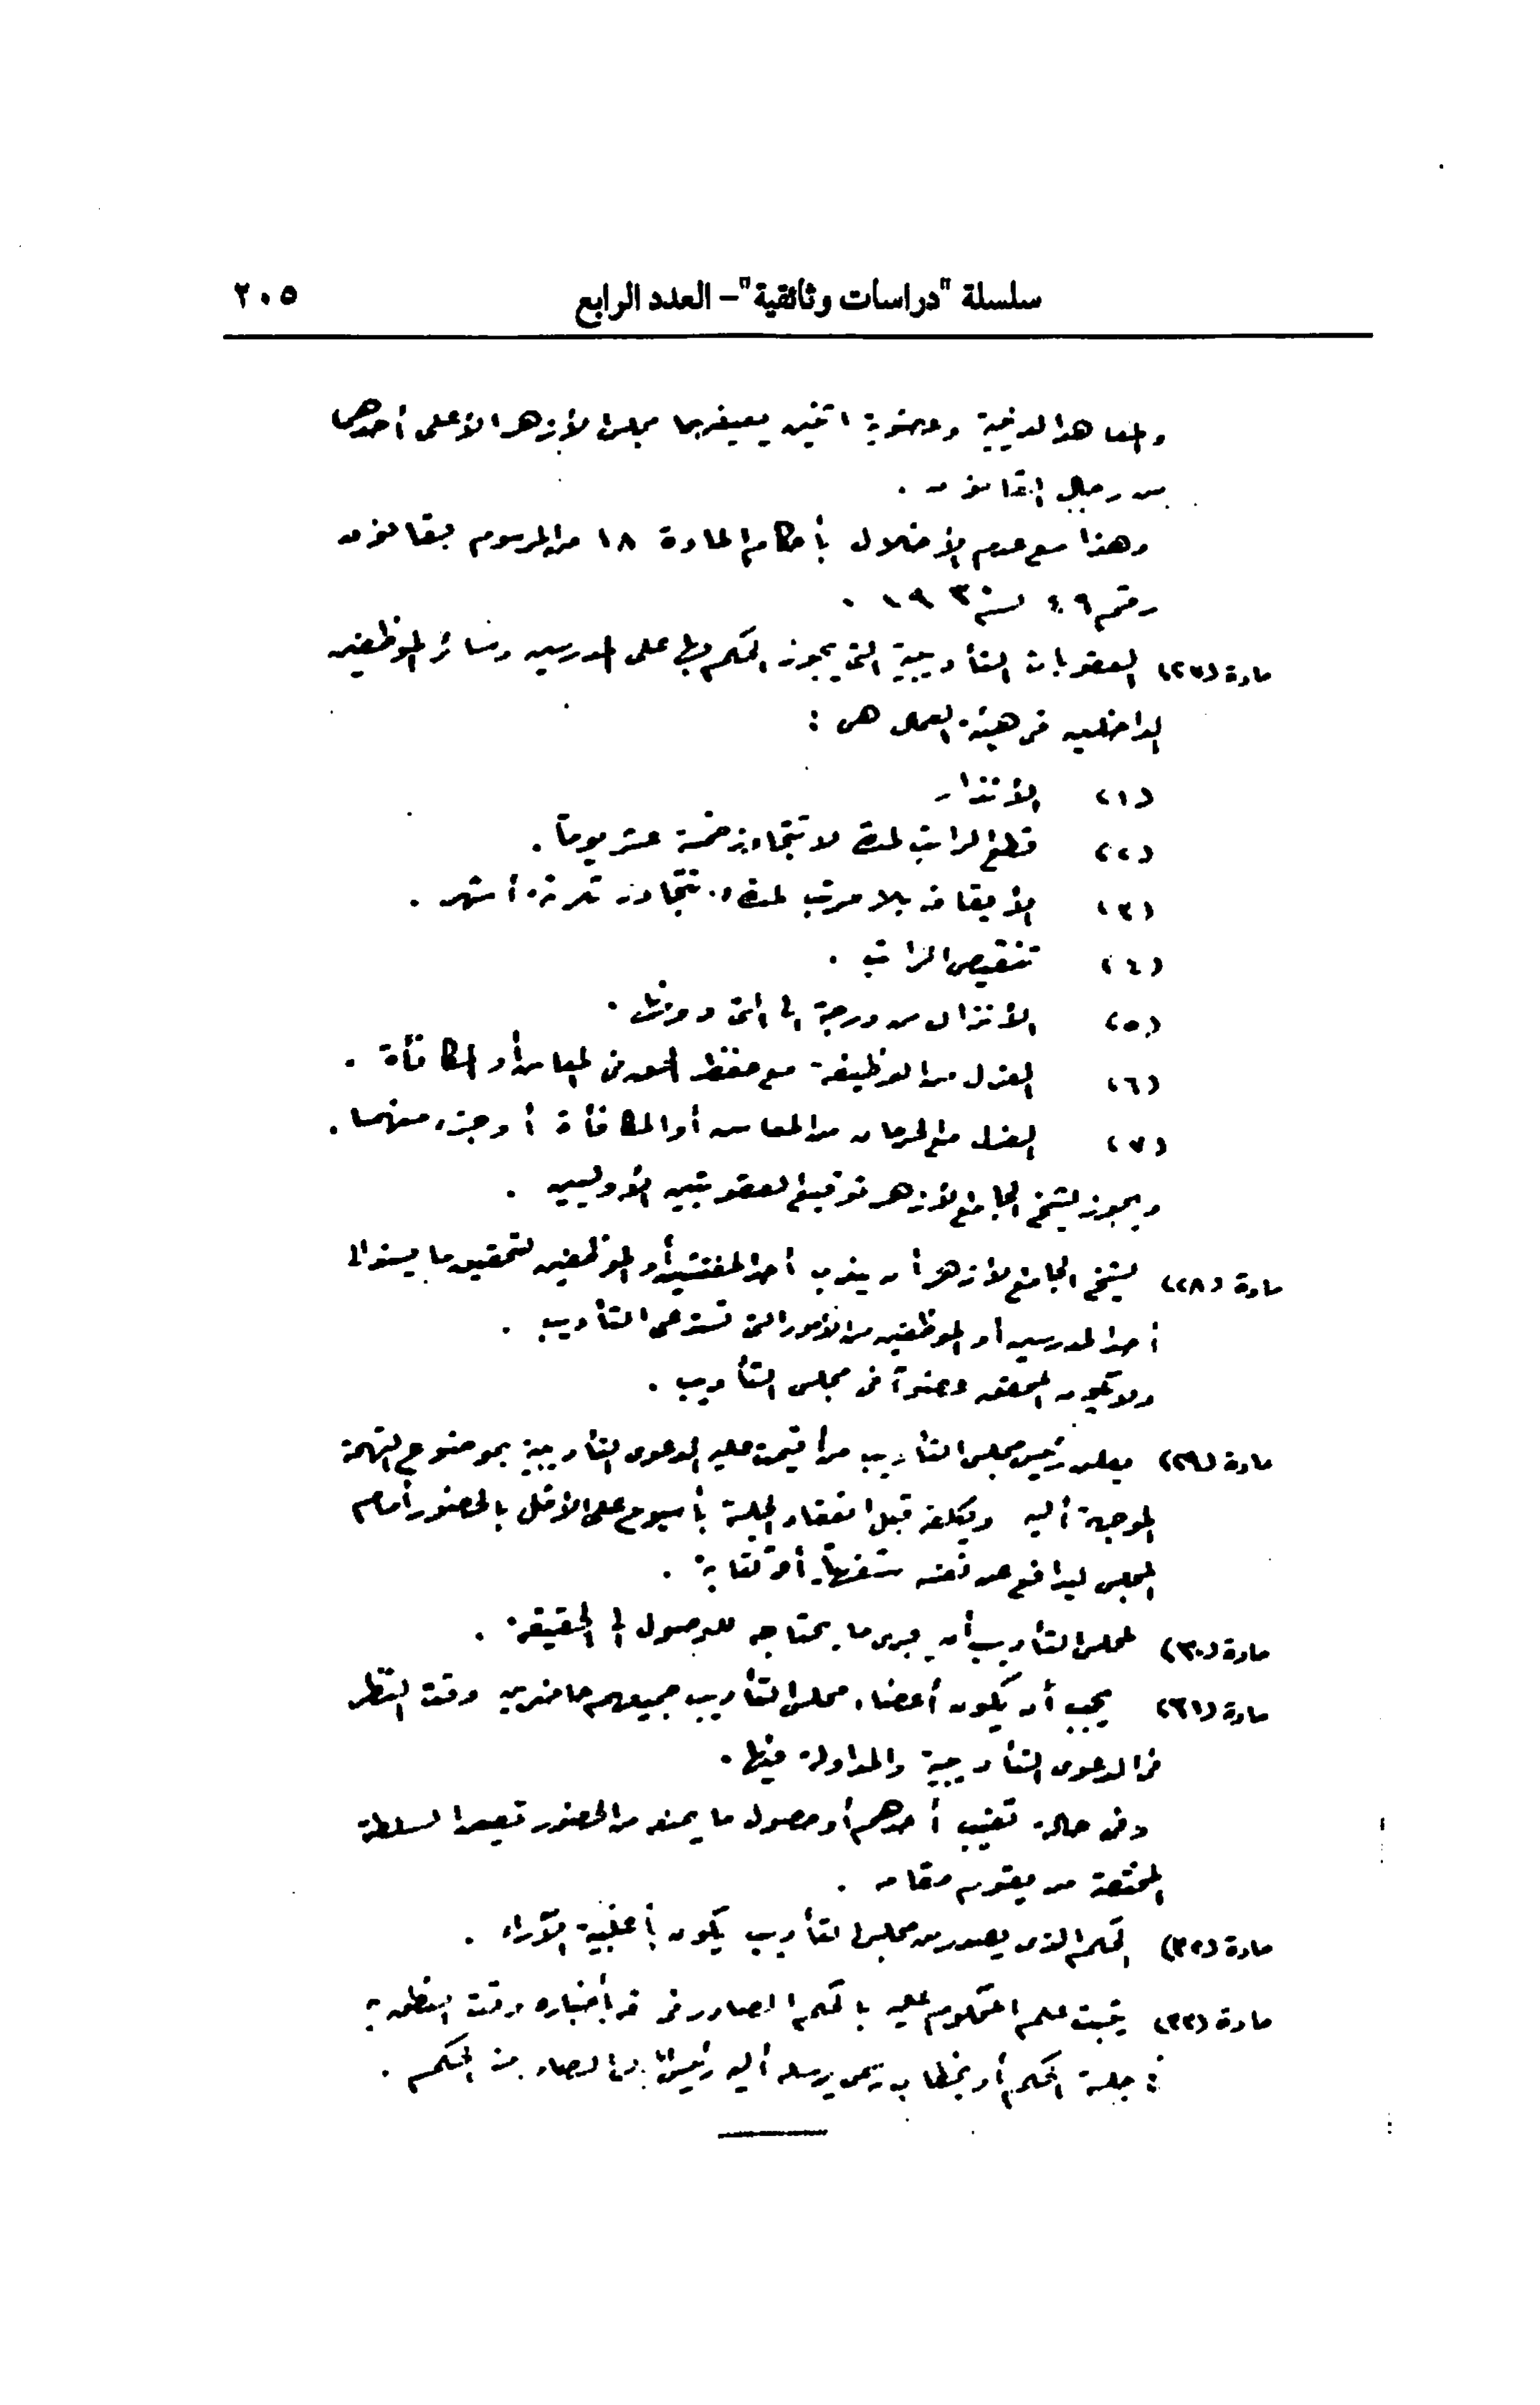 سلسلة "دراسات وثائقية"- العدد الرابع ٢٠٥
والمعاهد الدينية وعضوية اثنين يعينهما مجلس الأزهر الأعلى أحدهما
من رجال القانون .
وهذا مع عدم الأخلال بأحكام المادة ١٨ من المرسوم بقانون
رقم ٤٩ لسنة ١٩٣٠ .
مادة (٢٧) العقوبات التأديبية التى يجوز الحكم بها على المدرسين وسائر الموظفين
الداخلين فى هيئة العمال هى :
(١) الأنذار
(٢) قطع الراتب لمدة لا تتجاوز خمسة عشر يوماً .
(٣) الأيقاف بلا مرتب لمدة لا تتجاوز ثلاثة أشهر .
(٤) تنقيص الراتب .
(٥) الأنزال من درجة الى التى دونها .
(٦) العزل من الوظيفة مع حفظ الحق فى المعاش أو المكافأة .
(٧) العزل مع الحرمان من المعاش أو المكافأة أو جزء منهما .
ويجوز لشيخ الجامع الأزهر توقيع العقوبتين الأوليين .
مادة (٢٨) لشيخ الجامع الأزهر أن يندب أحد المفتشين أو الموظفين لتحقيق ما ينسب الى
أحد المدرسين أو الموظفين من الأمور التى تستدعى التأديب .
ولا يكون المحقق عضواً فى مجلس التأديب .
مادة (٢٩) يعلن رئيس مجلس التأديب من أقيمت عليه الدعوى التأديبية بموضوع التهمة
الموجهة أليه ويكلفه قبل انعقاد الجلسة بأسبوع على الأقل بالحضور أمام
المجلس ليدافع عن نفسه شفهياً أو كتابة .
مادة (٣٠) لمجلس التأديب أن يجرى ما يحتاجه للوصول الى الحقيقة .
مادة (٣١) يجب أن يكون أعضاء مجلس التأديب جميعهم حاضرين وقت النظر
فى الدعوى التأديبية والمداولة فيها .
وفى حالة تغيب أحدهم أو حصول ما يمنعه من الحضور تعين السلطة
المختصة من يقوم مقامه .
مادة (٣٢) الحكم الذى يصدر من مجلس التأديب يكون بأغلبية الآراء .
مادة (٣٣) يثبت علم المحكوم عليه بالحكم الصادر فى بأخباره وقت النطق به
جلسة الحكم أو بخطاب رسمى يرسله أليه رئيس الصادر منه الحكم .